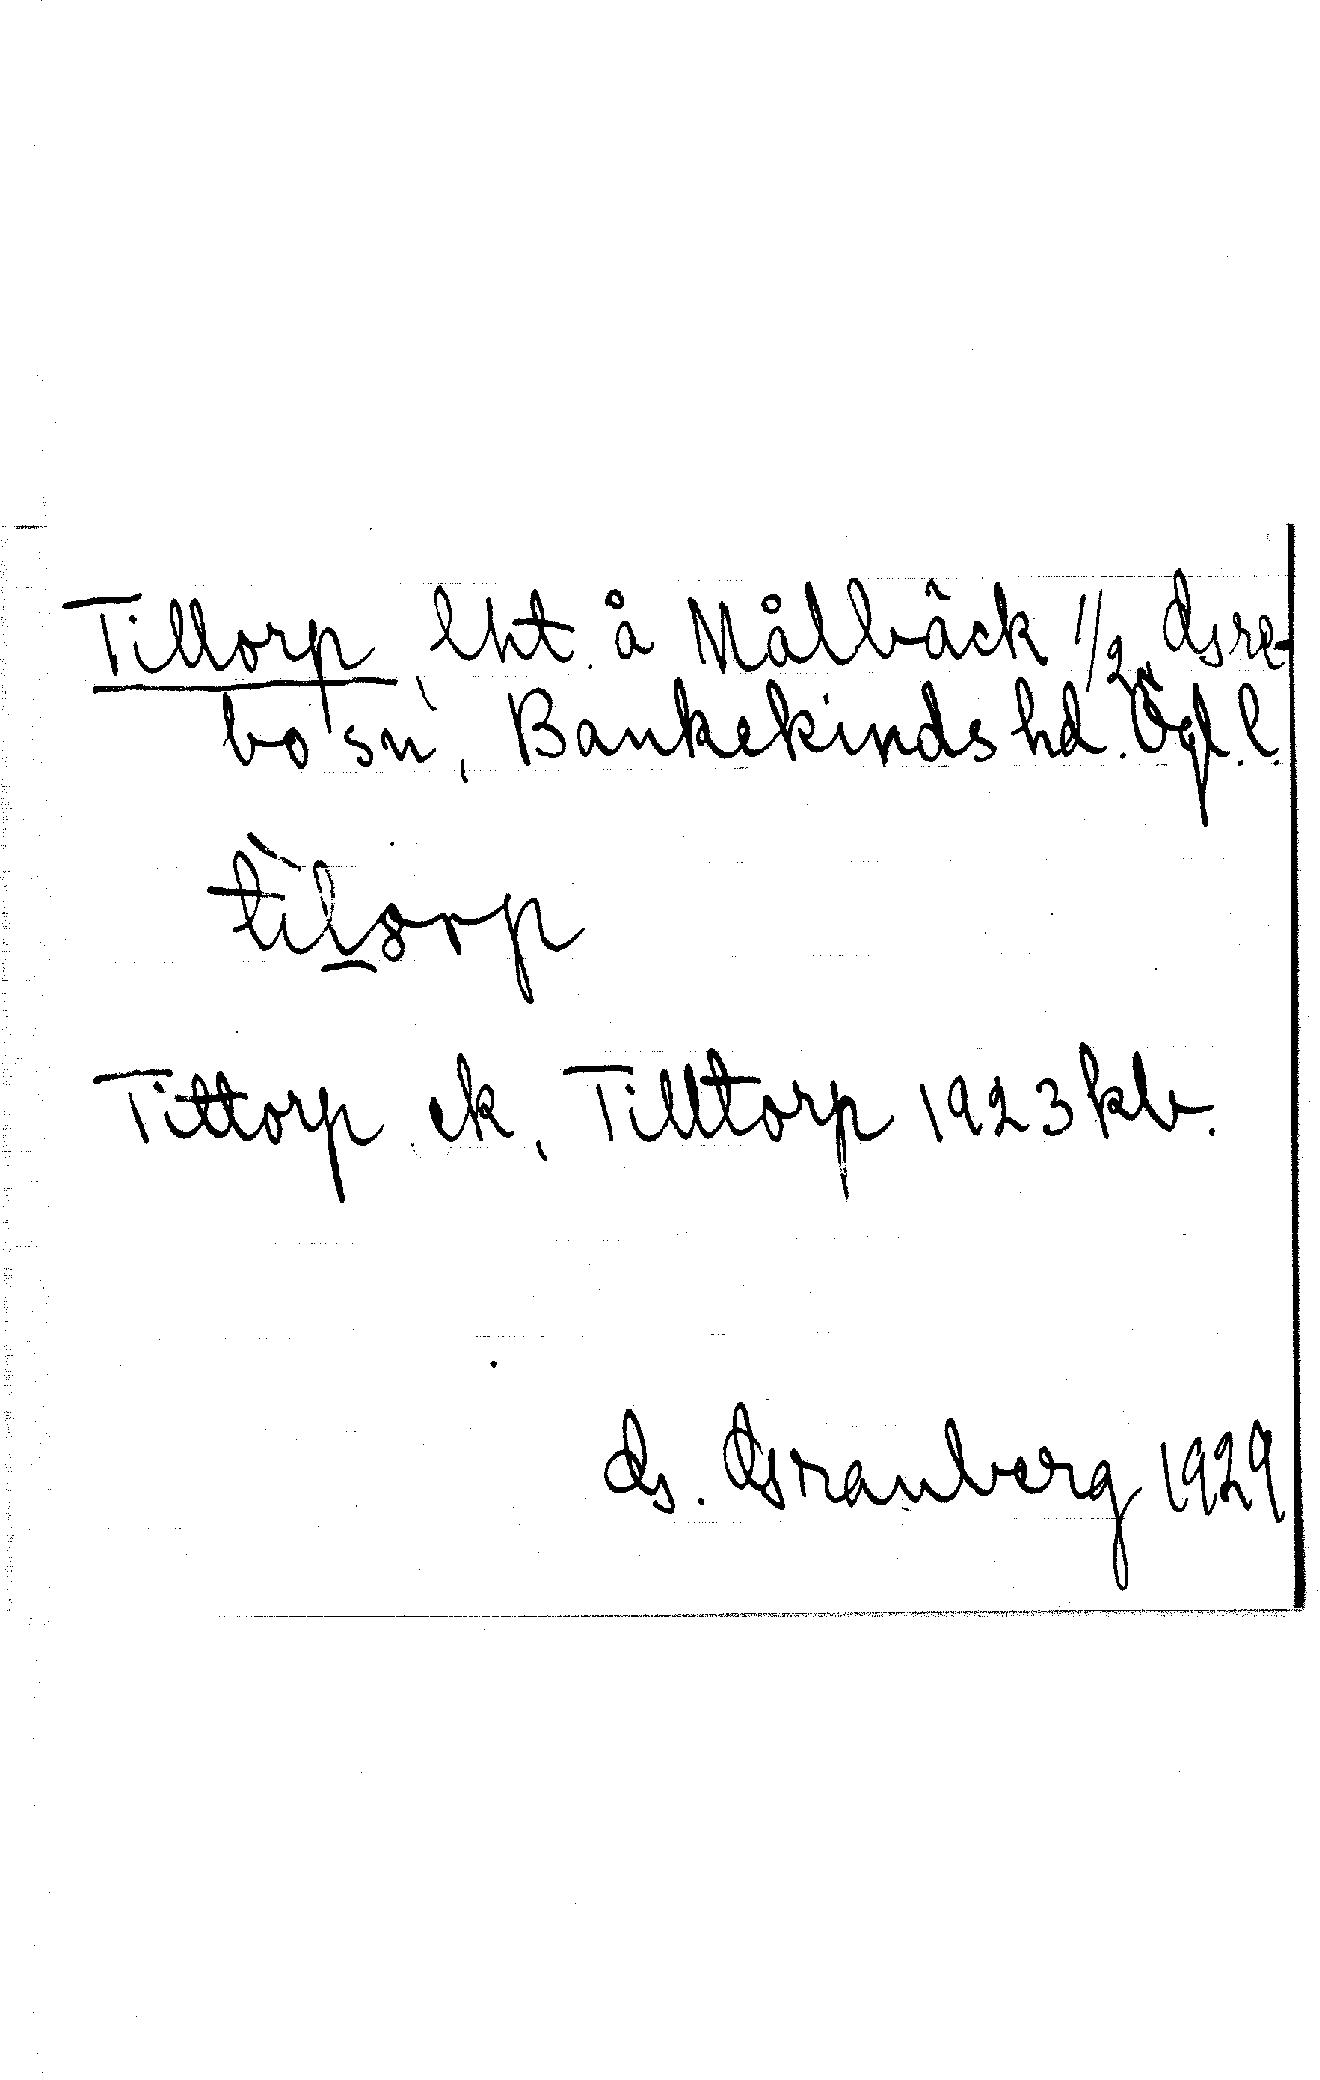 Tillorp, lht. å Målbäck 1/2, Gre-
bo sn, Bankekinds hd. Ögl. l.
Tittorp ek, Tilltorp 1923 kb.
G. Granberg 1929